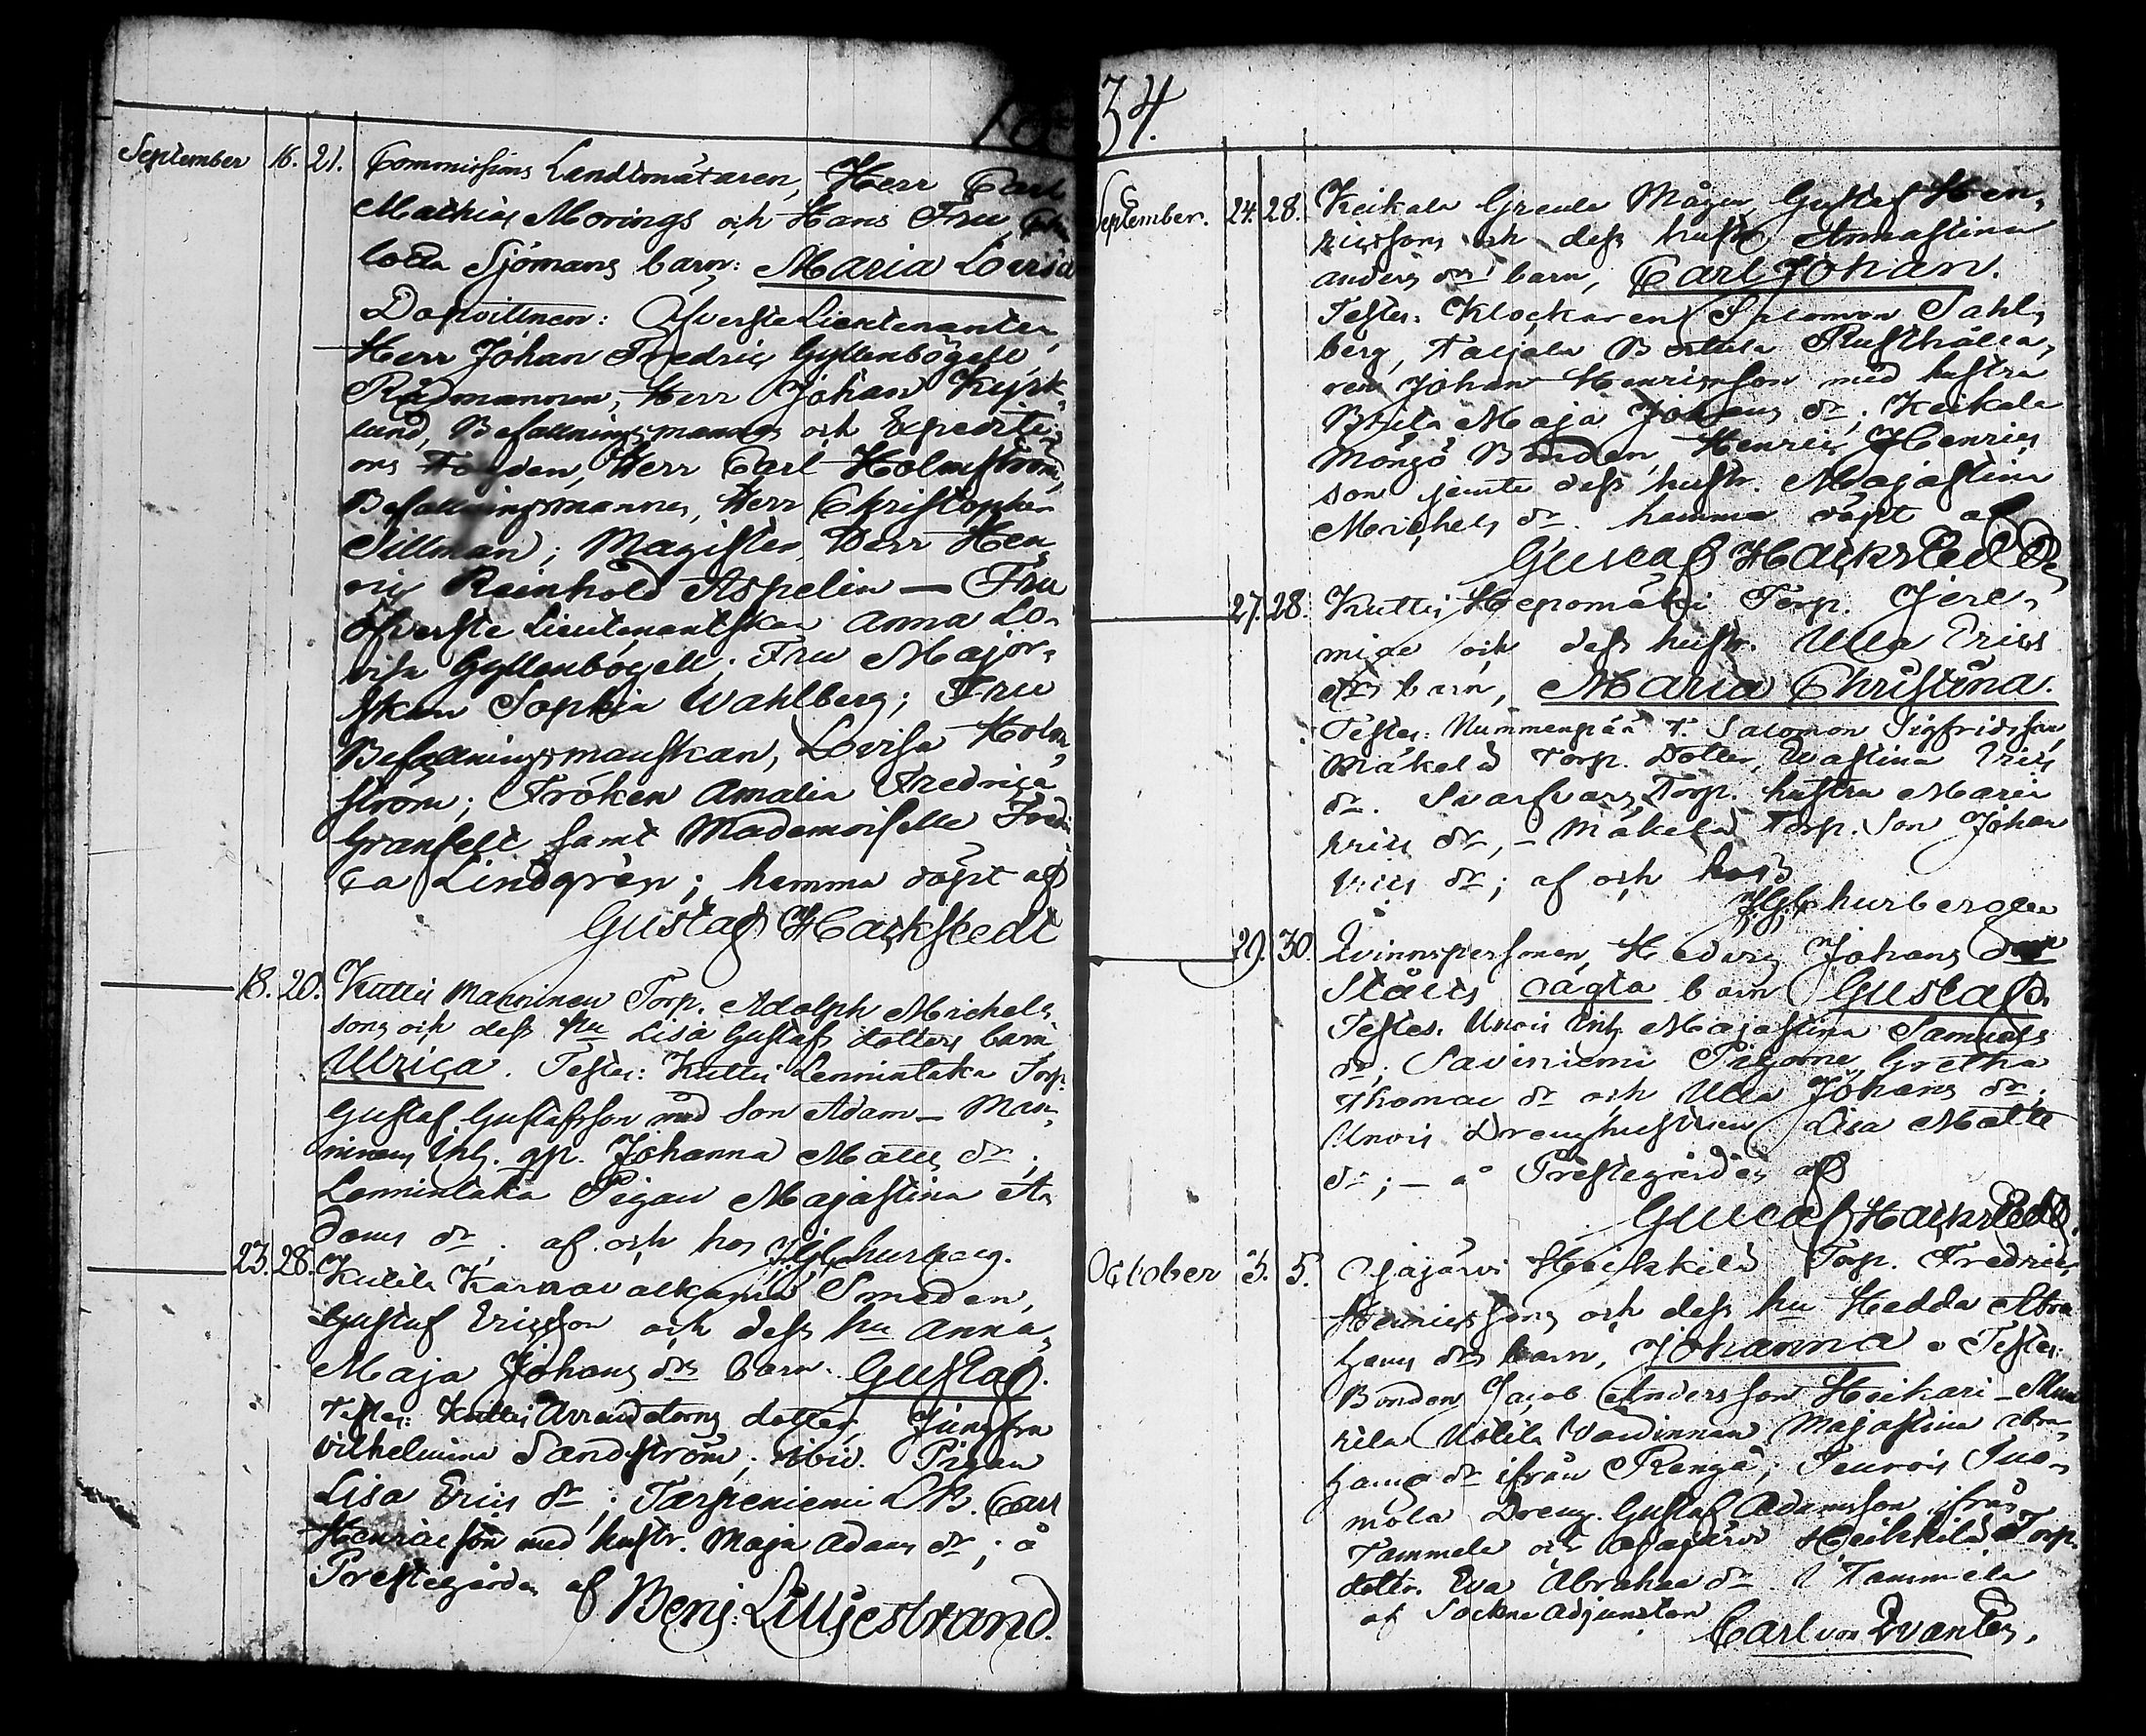 1834.
September 16. 21. Commissions Landtmätaren, Herr Carl
Mathias Morings och Hans Fru Char
lotta Sjömans barn: Maria Lovisa
Dopvittnen: Öfverste Lieutenanten,
Herr Johan Fredric Gyllenbögell,
Rådmannen, Herr Johan Kyrk,
lund, Befallningsmannen och Expediti,
ons Fogden, Herr Carl Holmström,
Befallningsmannen, Herr Christopher
Tillman; Magister, Herr Hen,
ric Reinhold Aspelin — Fru
Öfverste Lieutenantskan Anna Lo,
visa Gyllenbögell. Fru Major,
skan Sophia Wahlberg; Fru
Befallningsmanskan, Lovisa Holm,
ström; Fröken Amalia Fredrica
Granfelt samt Mademoiselle Fredri
ca Lindgren; hemma döpt af
Gustaf Hackstedt
18. 20. Kuttis Manninen Torp. Adolph Michels
sons och dess hu Lisa Gustafs dotters barn
Ulrica. Testes: Kuttis Lemmintaka Torp.
Gustaf Gustafsson med son Adam — Man,
ninens Inh. gp. Johanna Matts dr;
Lemmintaka Pigan Majastina A,
dams dr; af och hos
23. 28. Smeden,
Gustaf Ericsson och dess hu Anna,
Maja Johans drs barn Gustaf.
Testes: Kuttis Arrendatorns dotter, Jungfru
Vilhelmina Sandström; ibid. Pigan
Lisa Erics dr; Tarpeniemi Carl
Henricsson med hustr. Maja Adams dr; å
Prestegården af Benj: Lilljestrand.
September. 24. 28. Keikala Gustaf Hen,
ricssons och dess hustr Annastina
Anders drs barn, Carl Johan.
Testes: Klockaren Salomon Sahl,
berg, Rusthålla,
ren Johan Henricsson med hustru
Brita Maja Johans dr; Keikala
Bonden Henric Henrics
son jemte dess hustr. Majastina
Michels dr. hemma döpt af
Gustaf Hackstedt
27. 28. Kuttis Hepomäki Torp. Jere,
mias och dess hustr. Ulla Erics
drs barn, Maria Christina.
Testes: Nummenpää T. Salomon Sigfridsson,
Mäkelä Torp. Dotter, Evastina Erics
dr. Torp. hustru Maria
Erics dr, — Mäkelä Torp. Son Johan
Erics dr; af och hos
29. 30. Qvinnspersonen, Hedvig Johans dotter
Ståhls oägta barn Gustaf.
Testes. Inh. Majastina Samuels
dr; Saviniemi Pigorne Gretha
Thomae dr och Ulla Johans dr;
Drenghustrun Lisa Matts
dr; — å Prestegården af
Gustaf Hackstedt.
October 3. 5. Ojajärvi Heikkilä Torp. Fredric
Henricssons och dess hu Hedda Abra
hams drs barn, Johanna. Testes:
Bonden Jacob Andersson Heikari —
Värdinnan Majastina Abra,
hams dr ifrån Renga;
mola Dreng. Gustaf Adamsson ifrån
Tammela och Ojajärvi Heikkilä Torp.
dottr. Eva Abrahae dr i Tammela
af Sockne Adjuncten
Carl von Qvanten.